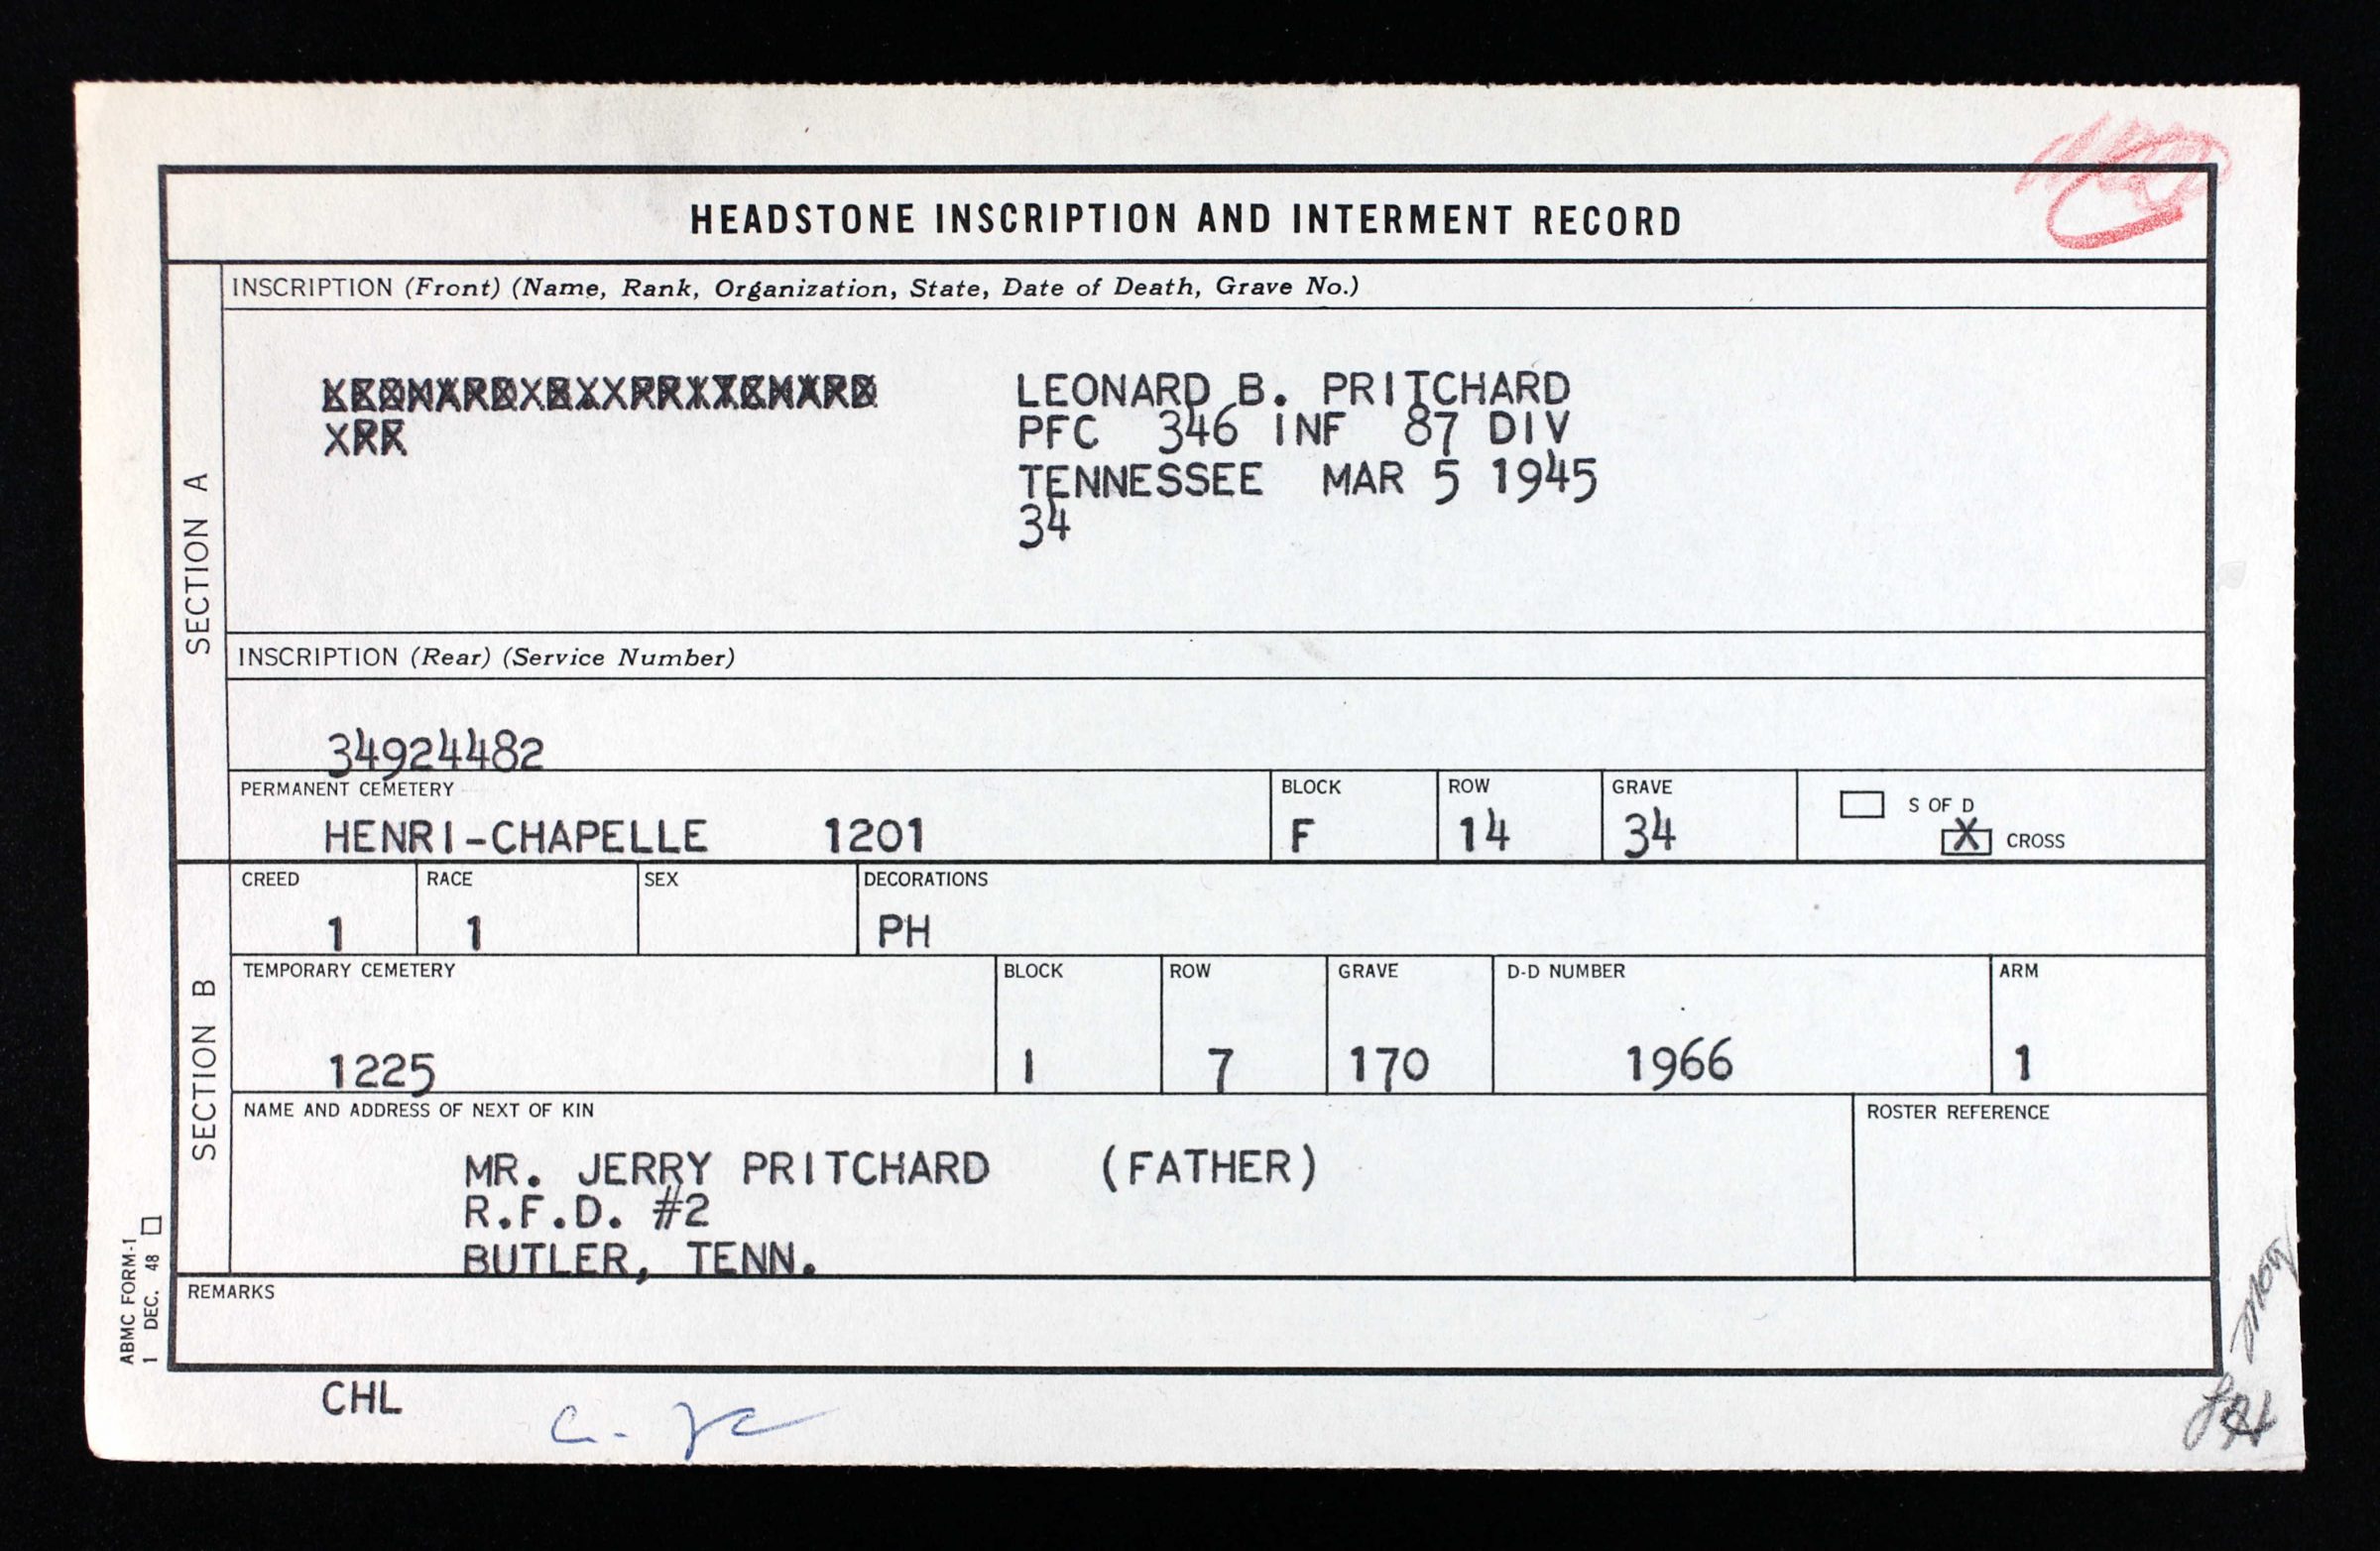 HEADSTONE INSCRIPTION AND INTERMENT RECORD
SECTION A
INSCRIPTION (Front) (Name, Rank, Organization, State, Date of Death, Grave No.)
LEONARD B. PRITCHARD
PFC 346 INF 87 DIV
TENNESSEE MAR 5 1945
34
INSCRIPTION (Rear) (Service Number)
34924482
PERMANENT CEMETERY BLOCK ROW GRAVE
HENRI-CHAPELLE 1201 F 14 34
S OF D
X CROSS
SECTION B
CREED RACE SEX DECORATIONS
1 1 PH
TEMPORARY CEMETERY BLOCK ROW GRAVE D-D NUMBER ARM
1225 I 7 170 1966 1
NAME AND ADDRESS OF NEXT OF KIN ROSTER REFERENCE
MR. JERRY PRITCHARD (FATHER)
R.F.D. #2
BUTLER, TENN.
REMARKS
ABMC FORM-1
1 DEC. 48
CHL